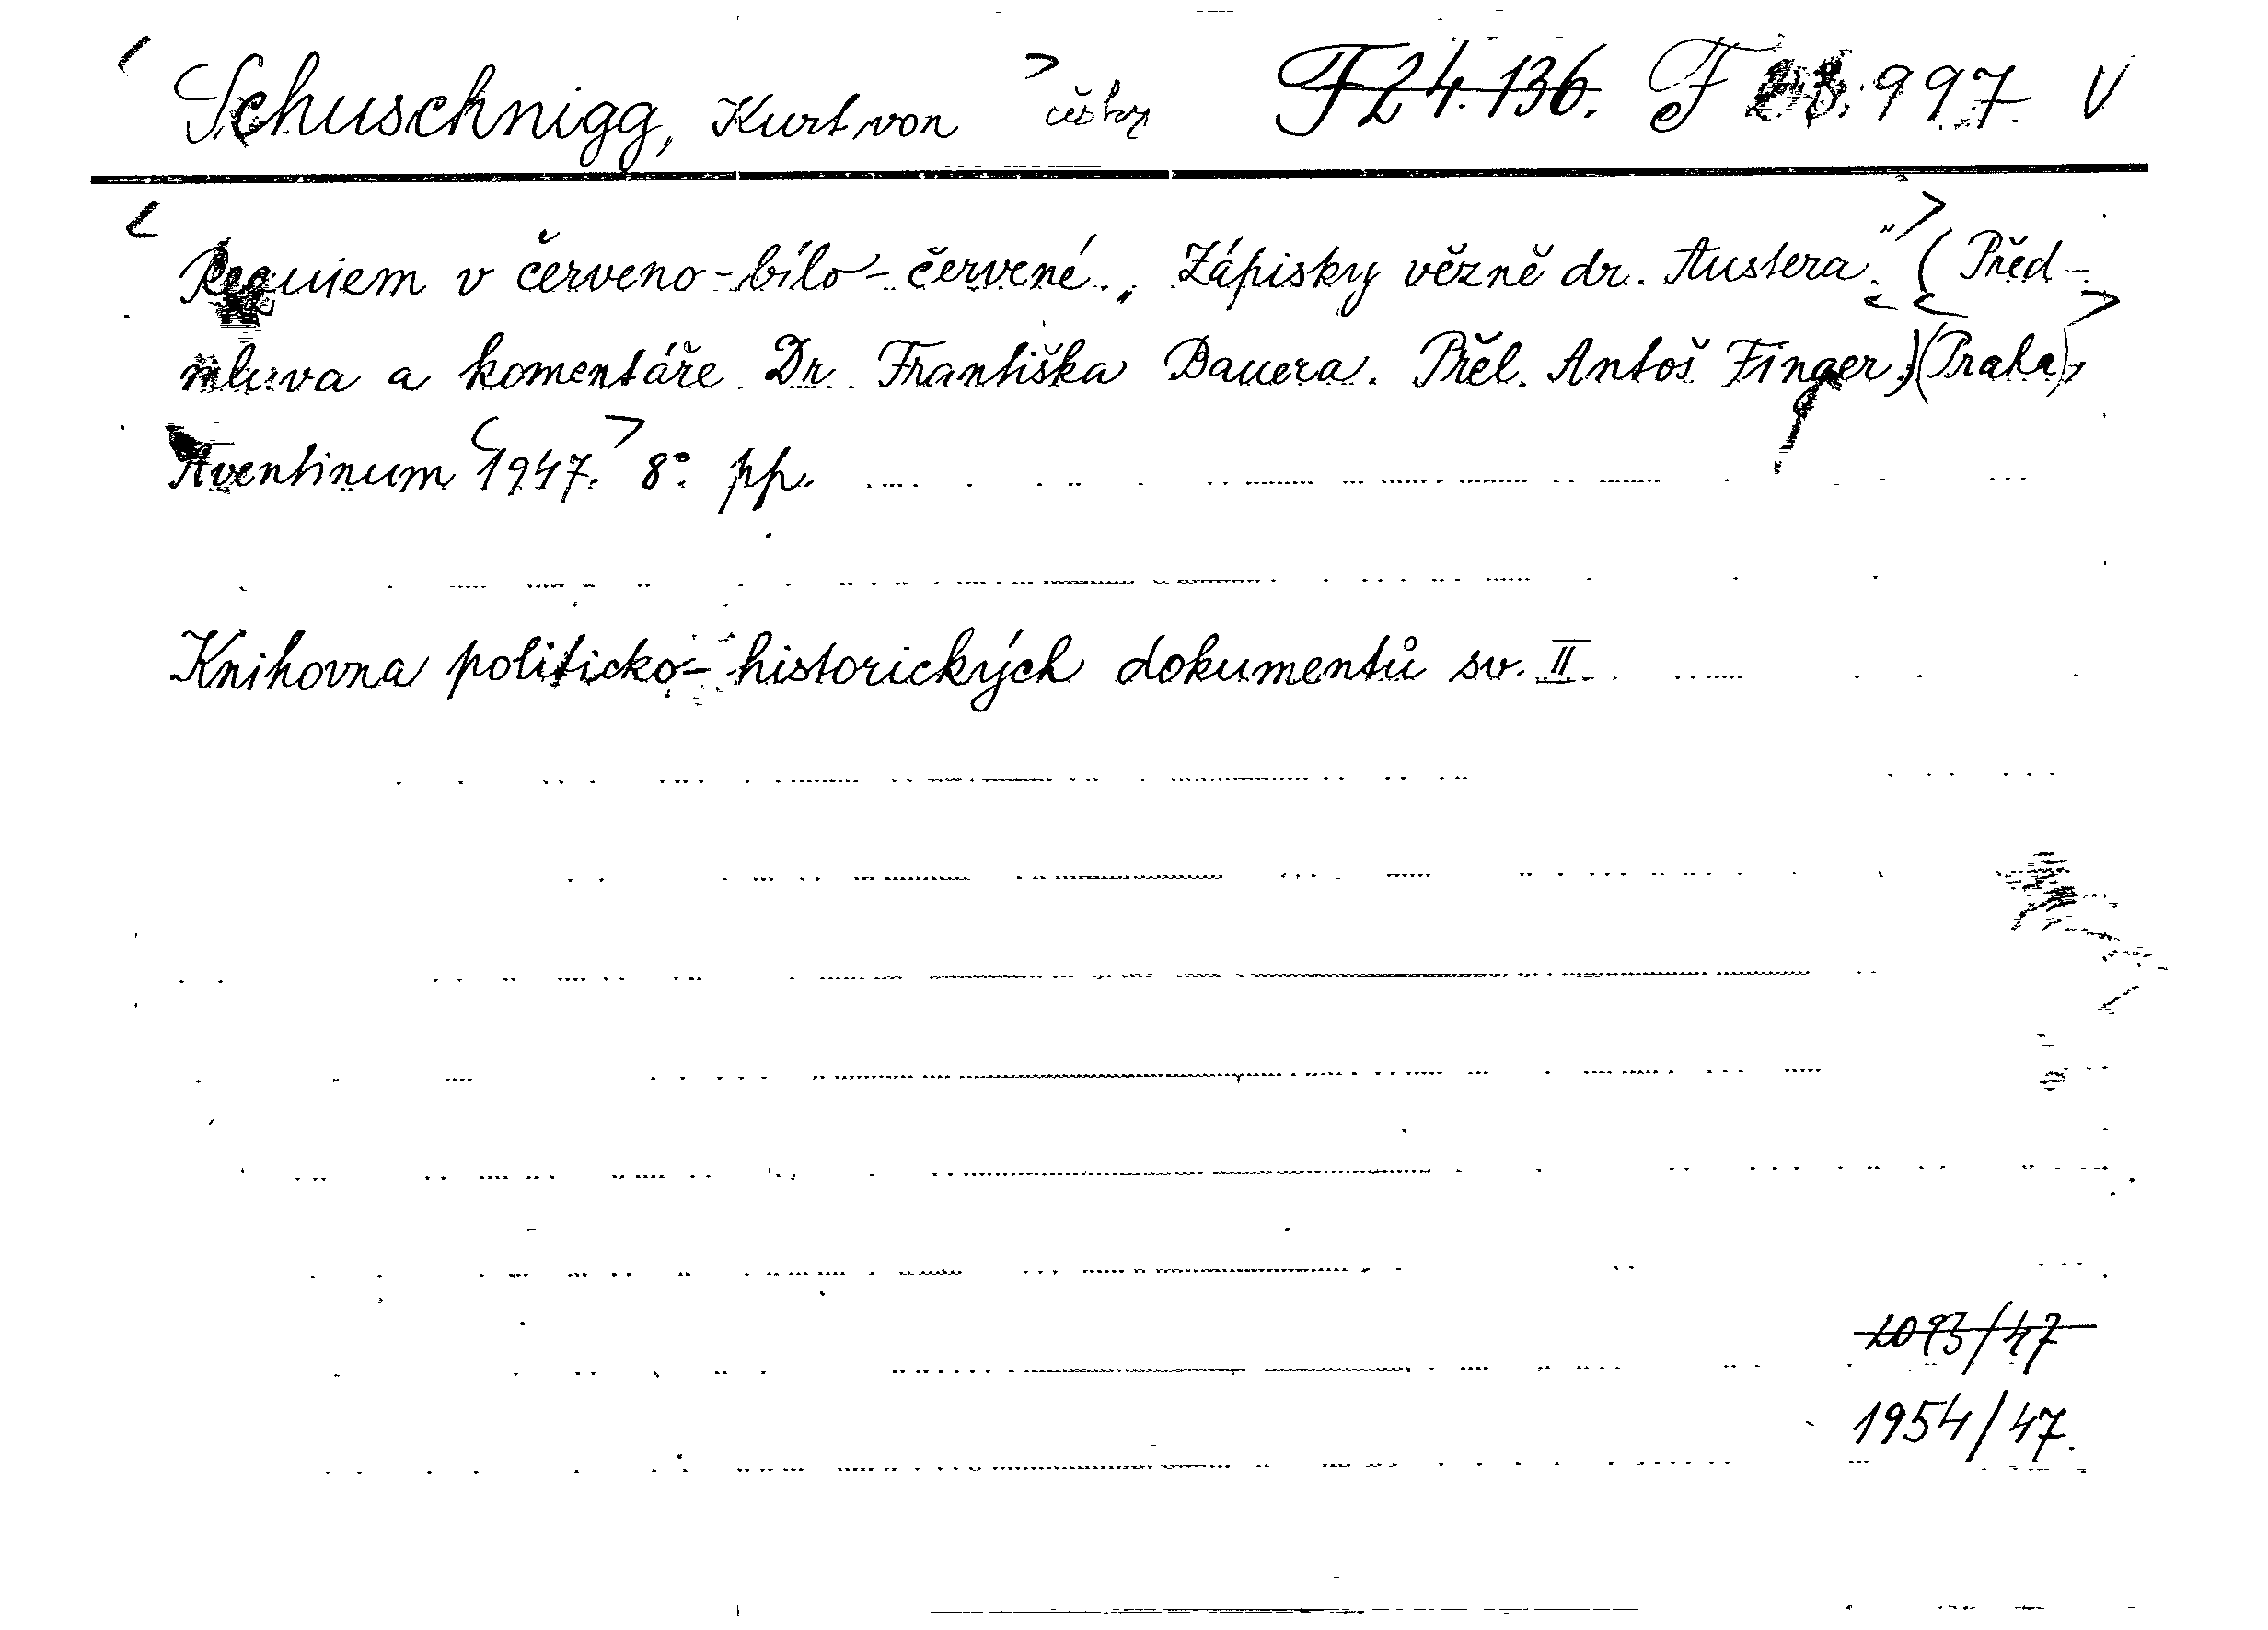 < Schuschnigg, Kurt von > česky F 24.136. F 997. V
< Requiem v červeno-bílo-červené. „Zápisky vězně dr. Austera." > (Před-
mluva a komentáře Dr Františka Bauera. Přel. Antoš Finger.) <(Praha)>,
Aventinum <1947.> 8° pp.
Knihovna politicko-historických dokumentů sv. II.
2093/47
1954/47.